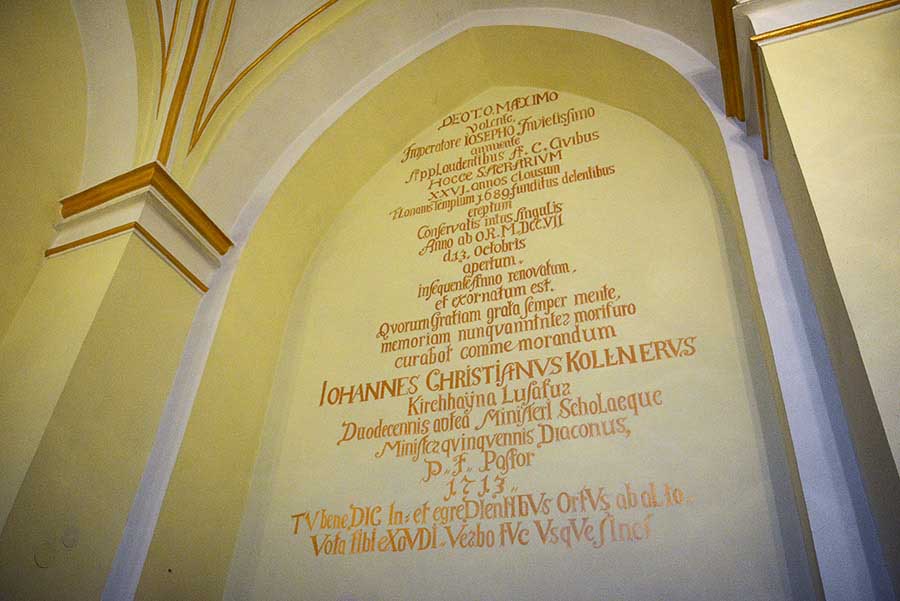 DEO T.O. MAXIMO
Volente,
Imperatore IOSEPHO Invictissimo
annuente
Applaudentibus AC. Civibus
HOCCE SACRARIUM
XXVI. annos clausum
1689 funditus delentibus
ereptum
Conservatis intus singulis
Anno ab O.R.M.DCC.VII
d.13. Octobris
apertum„
insequente Anno renovatum,
et exornatum est.
Qvorum gratiam grata semper mente,
memoriam nunqvam
curabat commemorandum
IOHANNES CHRISTIANVS KOLLNERVS
Kirchhayna Lusatus
Duodecennis antea MinisterI ScholaEque
Minister qvinqvennis Diaconus,
P„ F„ Pastor
1713
TV bene DIC In- et egreDIentIbVs OrtVs ab aLto„
Vota tIbI eXaVDI - Verbo tVc VsqVe sInes